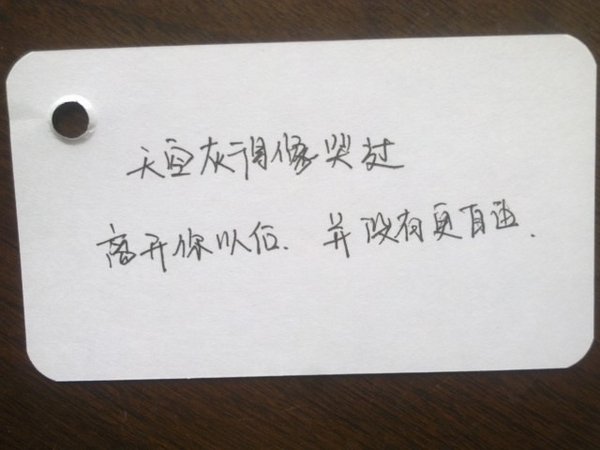 天空灰得像哭过
离开你以后. 并没有更自由.